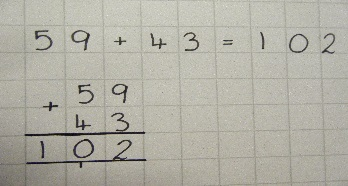 59 + 43 = 102
59
+ 43
102
1